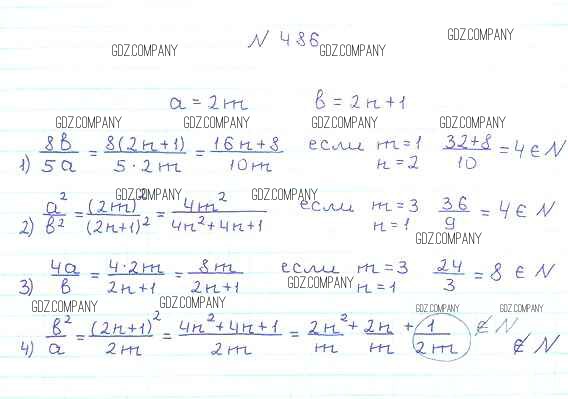 N 486
GDZ.COMPANY GDZ.COMPANY GDZ.COMPANY
a = 2m b = 2n+1
GDZ.COMPANY GDZ.COMPANY GDZ.COMPANY GDZ.COMPANY
1) 8b/5a = 8(2n+1)/5·2m = 16n+8/10m если m=1 n=2 32+8/10 = 4 ∈ N
GDZ.COMPANY GDZ.COMPANY
2) a²/b² = (2m)²/(2n+1)² = 4m²/4n²+4n+1 если m=3 n=1 36/9 = 4 ∈ N
GDZ.COMPANY
3) 4a/b = 4·2m/2n+1 = 8m/2n+1 если m=3 n=1 24/3 = 8 ∈ N
GDZ.COMPANY GDZ.COMPANY GDZ.COMPANY GDZ.COMPANY GDZ.COMPANY
4) b²/a = (2n+1)²/2m = 4n²+4n+1/2m = 2n²/m + 2n/m + 1/2m ∉ N
∉ N